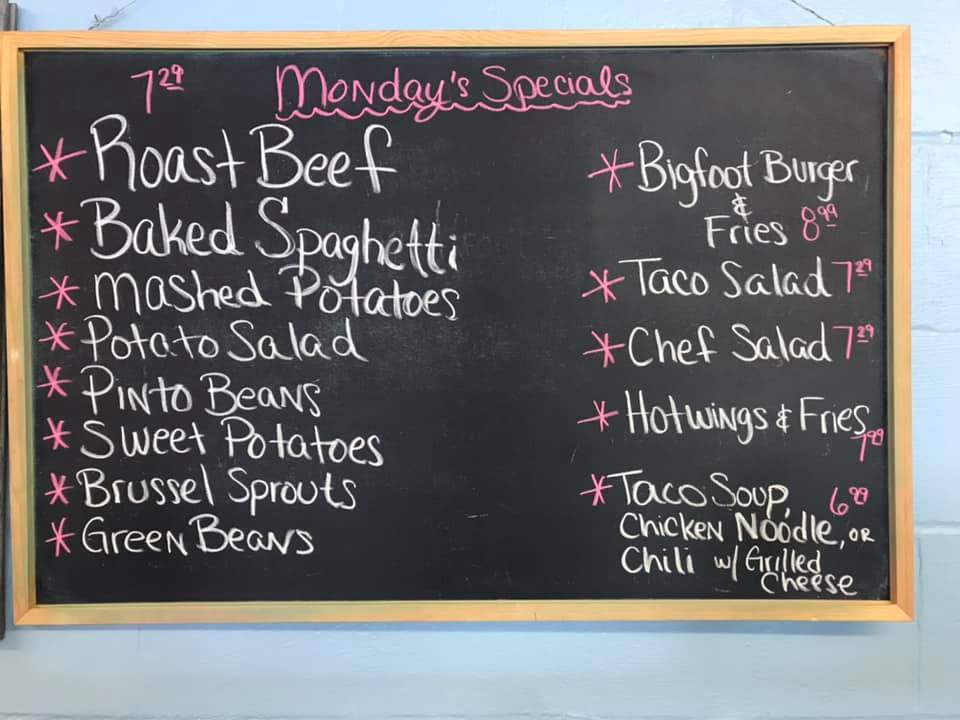 7.29 Monday's Specials
* Roast Beef
* Baked Spaghetti
* Mashed Potatoes
* Potato Salad
* Pinto Beans
* Sweet Potatoes
* Brussel Sprouts
* Green Beans
* Bigfoot Burger
&
Fries 8.99
* Taco Salad 7.29
* Chef Salad 7.29
* Hotwings & Fries
7.99
* Taco Soup, 6.99
Chicken Noodle, or
Chili w/ Grilled
Cheese